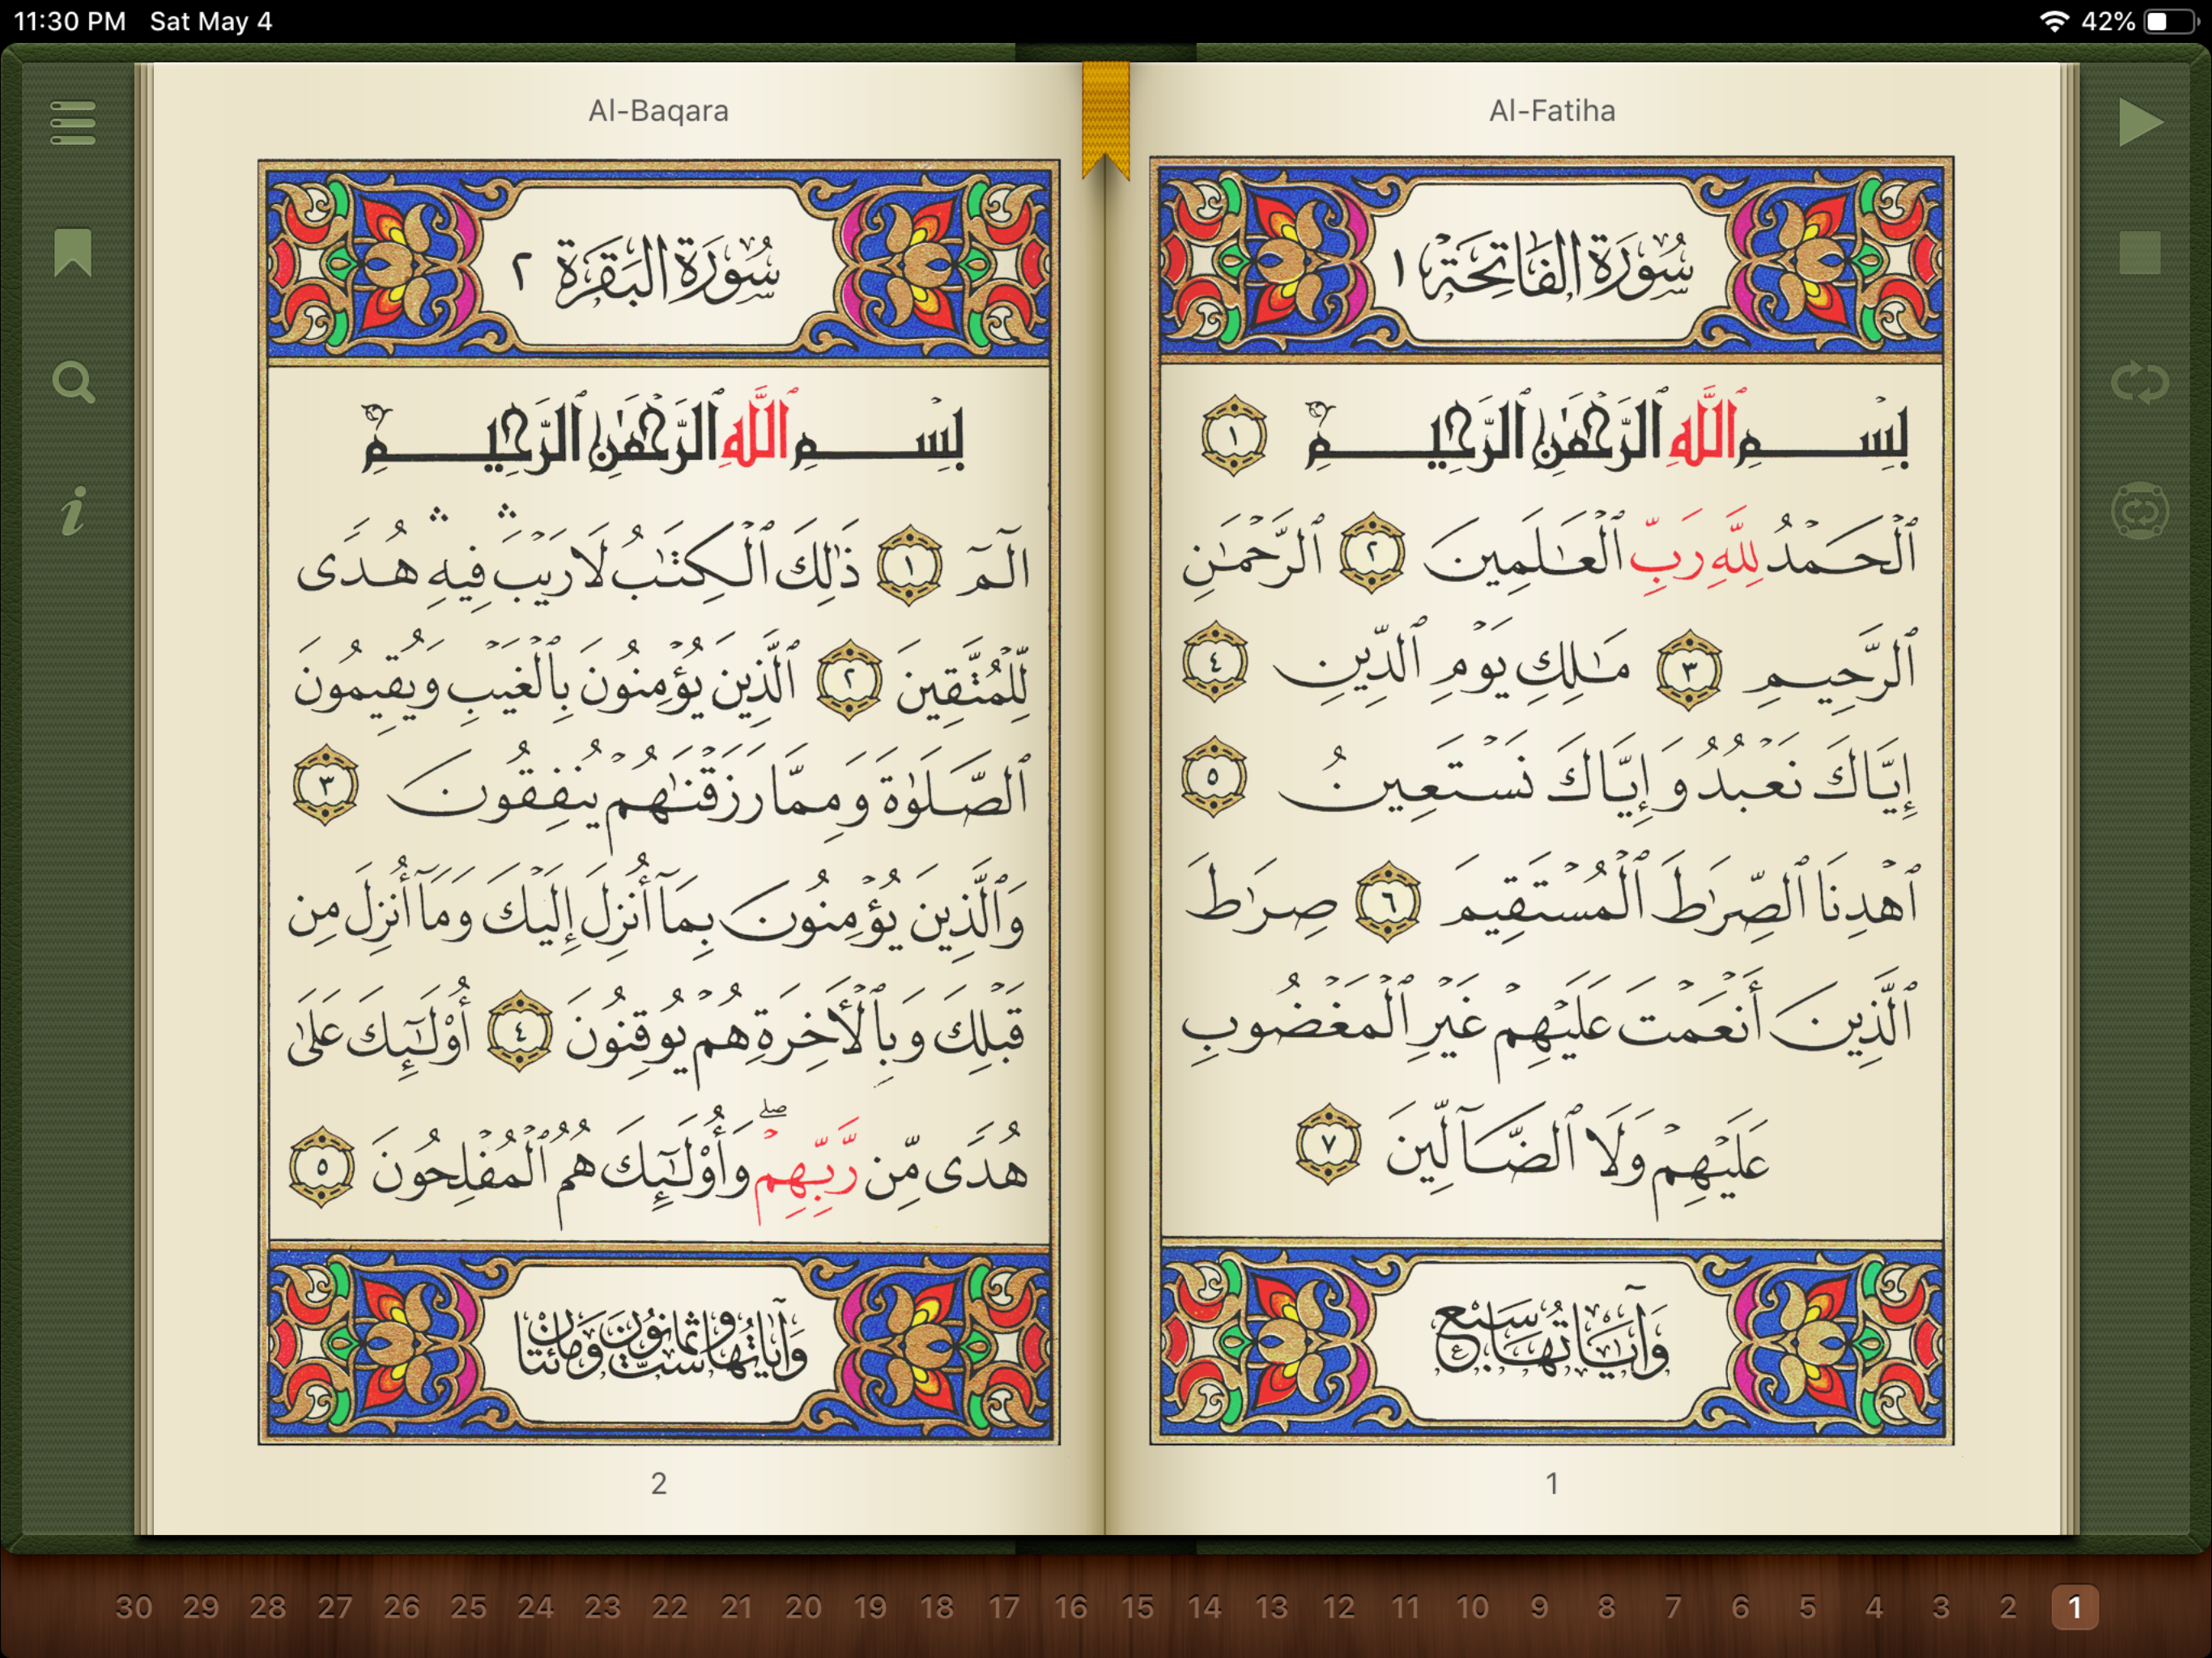 11:30 PM Sat May 4
42%
Al-Fatiha
سُورَةُ الفَاتِحَةِ ١
بِسْمِ ٱللَّهِ ٱلرَّحْمَٰنِ ٱلرَّحِيمِ ١
ٱلْحَمْدُ لِلَّهِ رَبِّ ٱلْعَٰلَمِينَ ٢ ٱلرَّحْمَٰنِ
ٱلرَّحِيمِ ٣ مَٰلِكِ يَوْمِ ٱلدِّينِ ٤
إِيَّاكَ نَعْبُدُ وَإِيَّاكَ نَسْتَعِينُ ٥
ٱهْدِنَا ٱلصِّرَٰطَ ٱلْمُسْتَقِيمَ ٦ صِرَٰطَ
ٱلَّذِينَ أَنْعَمْتَ عَلَيْهِمْ غَيْرِ ٱلْمَغْضُوبِ
عَلَيْهِمْ وَلَا ٱلضَّآلِّينَ ٧
وَآيَاتُهَا سَبْعٌ
1
Al-Baqara
سُورَةُ البَقَرَةِ ٢
بِسْمِ ٱللَّهِ ٱلرَّحْمَٰنِ ٱلرَّحِيمِ
الٓمٓ ١ ذَٰلِكَ ٱلْكِتَٰبُ لَا رَيْبَۛ فِيهِۛ هُدًى
لِّلْمُتَّقِينَ ٢ ٱلَّذِينَ يُؤْمِنُونَ بِٱلْغَيْبِ وَيُقِيمُونَ
ٱلصَّلَوٰةَ وَمِمَّا رَزَقْنَٰهُمْ يُنفِقُونَ ٣
وَٱلَّذِينَ يُؤْمِنُونَ بِمَآ أُنزِلَ إِلَيْكَ وَمَآ أُنزِلَ مِن
قَبْلِكَ وَبِٱلْأَخِرَةِ هُمْ يُوقِنُونَ ٤ أُو۟لَٰٓئِكَ عَلَىٰ
هُدًى مِّن رَّبِّهِمْۖ وَأُو۟لَٰٓئِكَ هُمُ ٱلْمُفْلِحُونَ ٥
وَآيَاتُهَا سِتٌّ وَثَمَانُونَ وَمِائَتَانِ
2
30 29 28 27 26 25 24 23 22 21 20 19 18 17 16 15 14 13 12 11 10 9 8 7 6 5 4 3 2 1